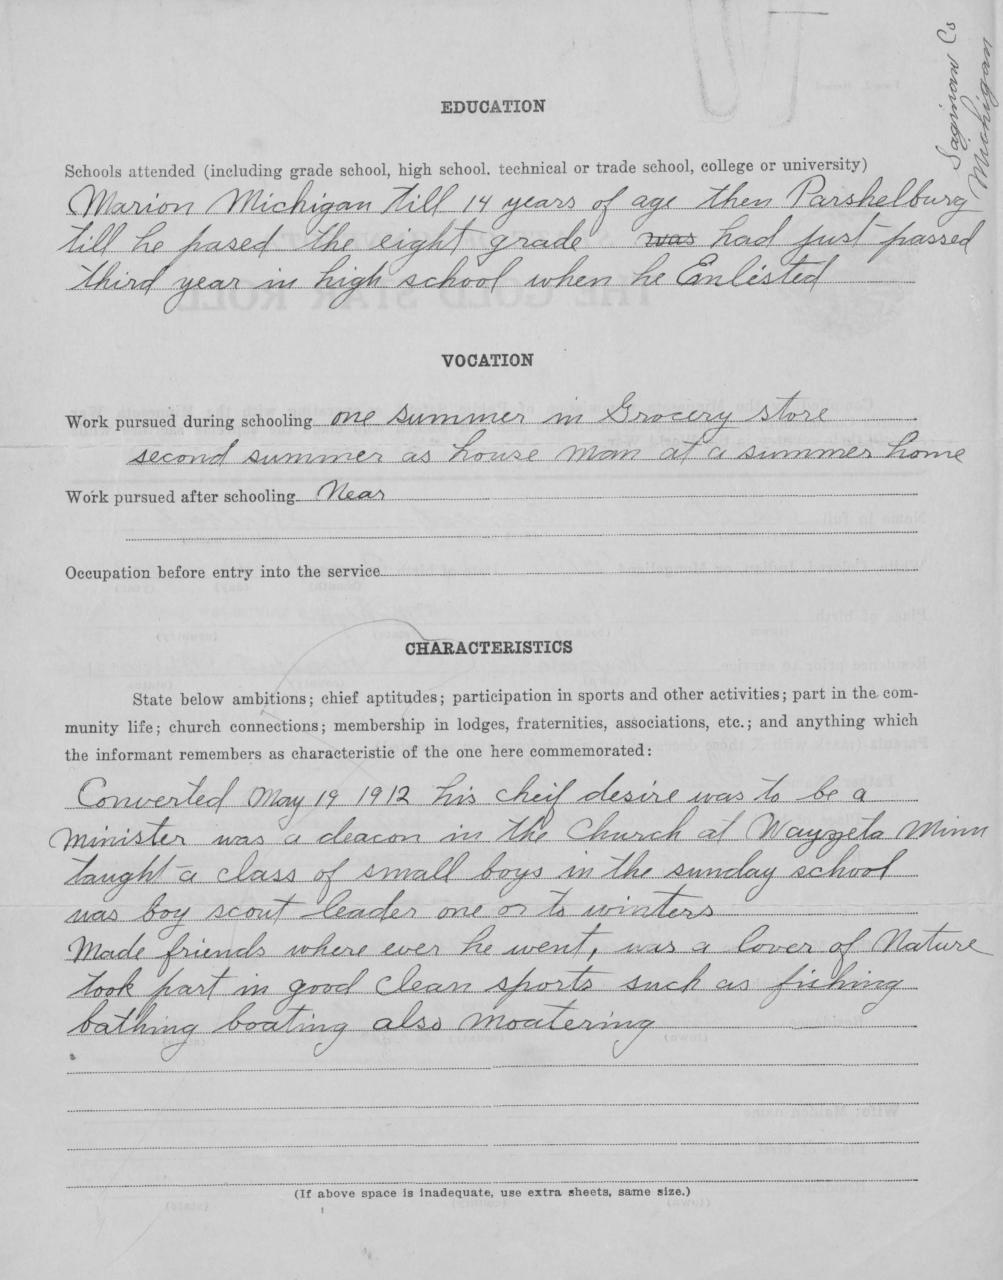 Saginaw Co
Michigan
EDUCATION
Schools attended (including grade school, high school. technical or trade school, college or university)
Marion Michigan till 14 years of age then Parshelburg
till he pased the eight grade was had just passed
third year in high school when he Enlisted
VOCATION
Work pursued during schooling one summer in Grocery store
second summer as house man at a summer home
Work pursued after schooling Near
Occupation before entry into the service
CHARACTERISTICS
State below ambitions; chief aptitudes; participation in sports and other activities; part in the com-
munity life; church connections; membership in lodges, fraternities, associations, etc.; and anything which
the informant remembers as characteristic of the one here commemorated:
Converted May 19 1912 his cheif desire was to be a
minister was a deacon in the Church at Wayzeta Minn
taught a class of small boys in the sunday school
was boy scout leader one or to winters
Made friends where ever he went, was a lover of Nature
took part in good clean sports such as fishing
bathing boating also moatering
(If above space is inadequate, use extra sheets, same size.)